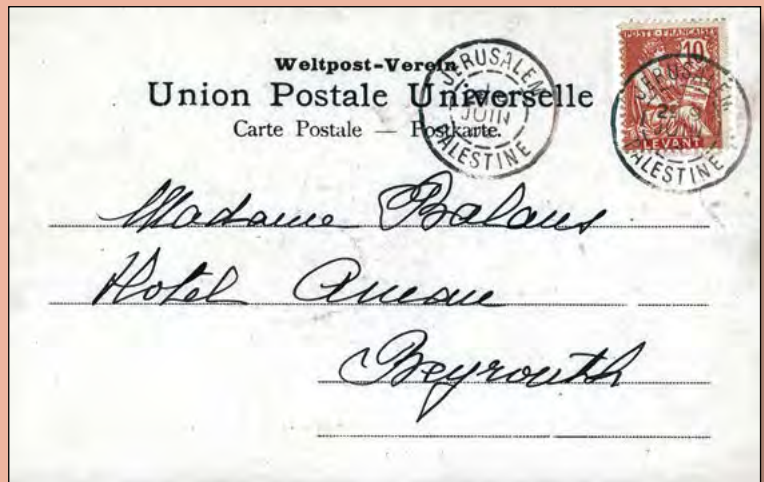 Weltpost-Verein
Union Postale Universelle
Carte Postale — Postkarte.
JERUSALEM
JUIN
PALESTINE
POSTE FRANÇAISE
10
LEVANT
JERUSALEM
JUIN
PALESTINE
Madame
Hotel
Beyrouth